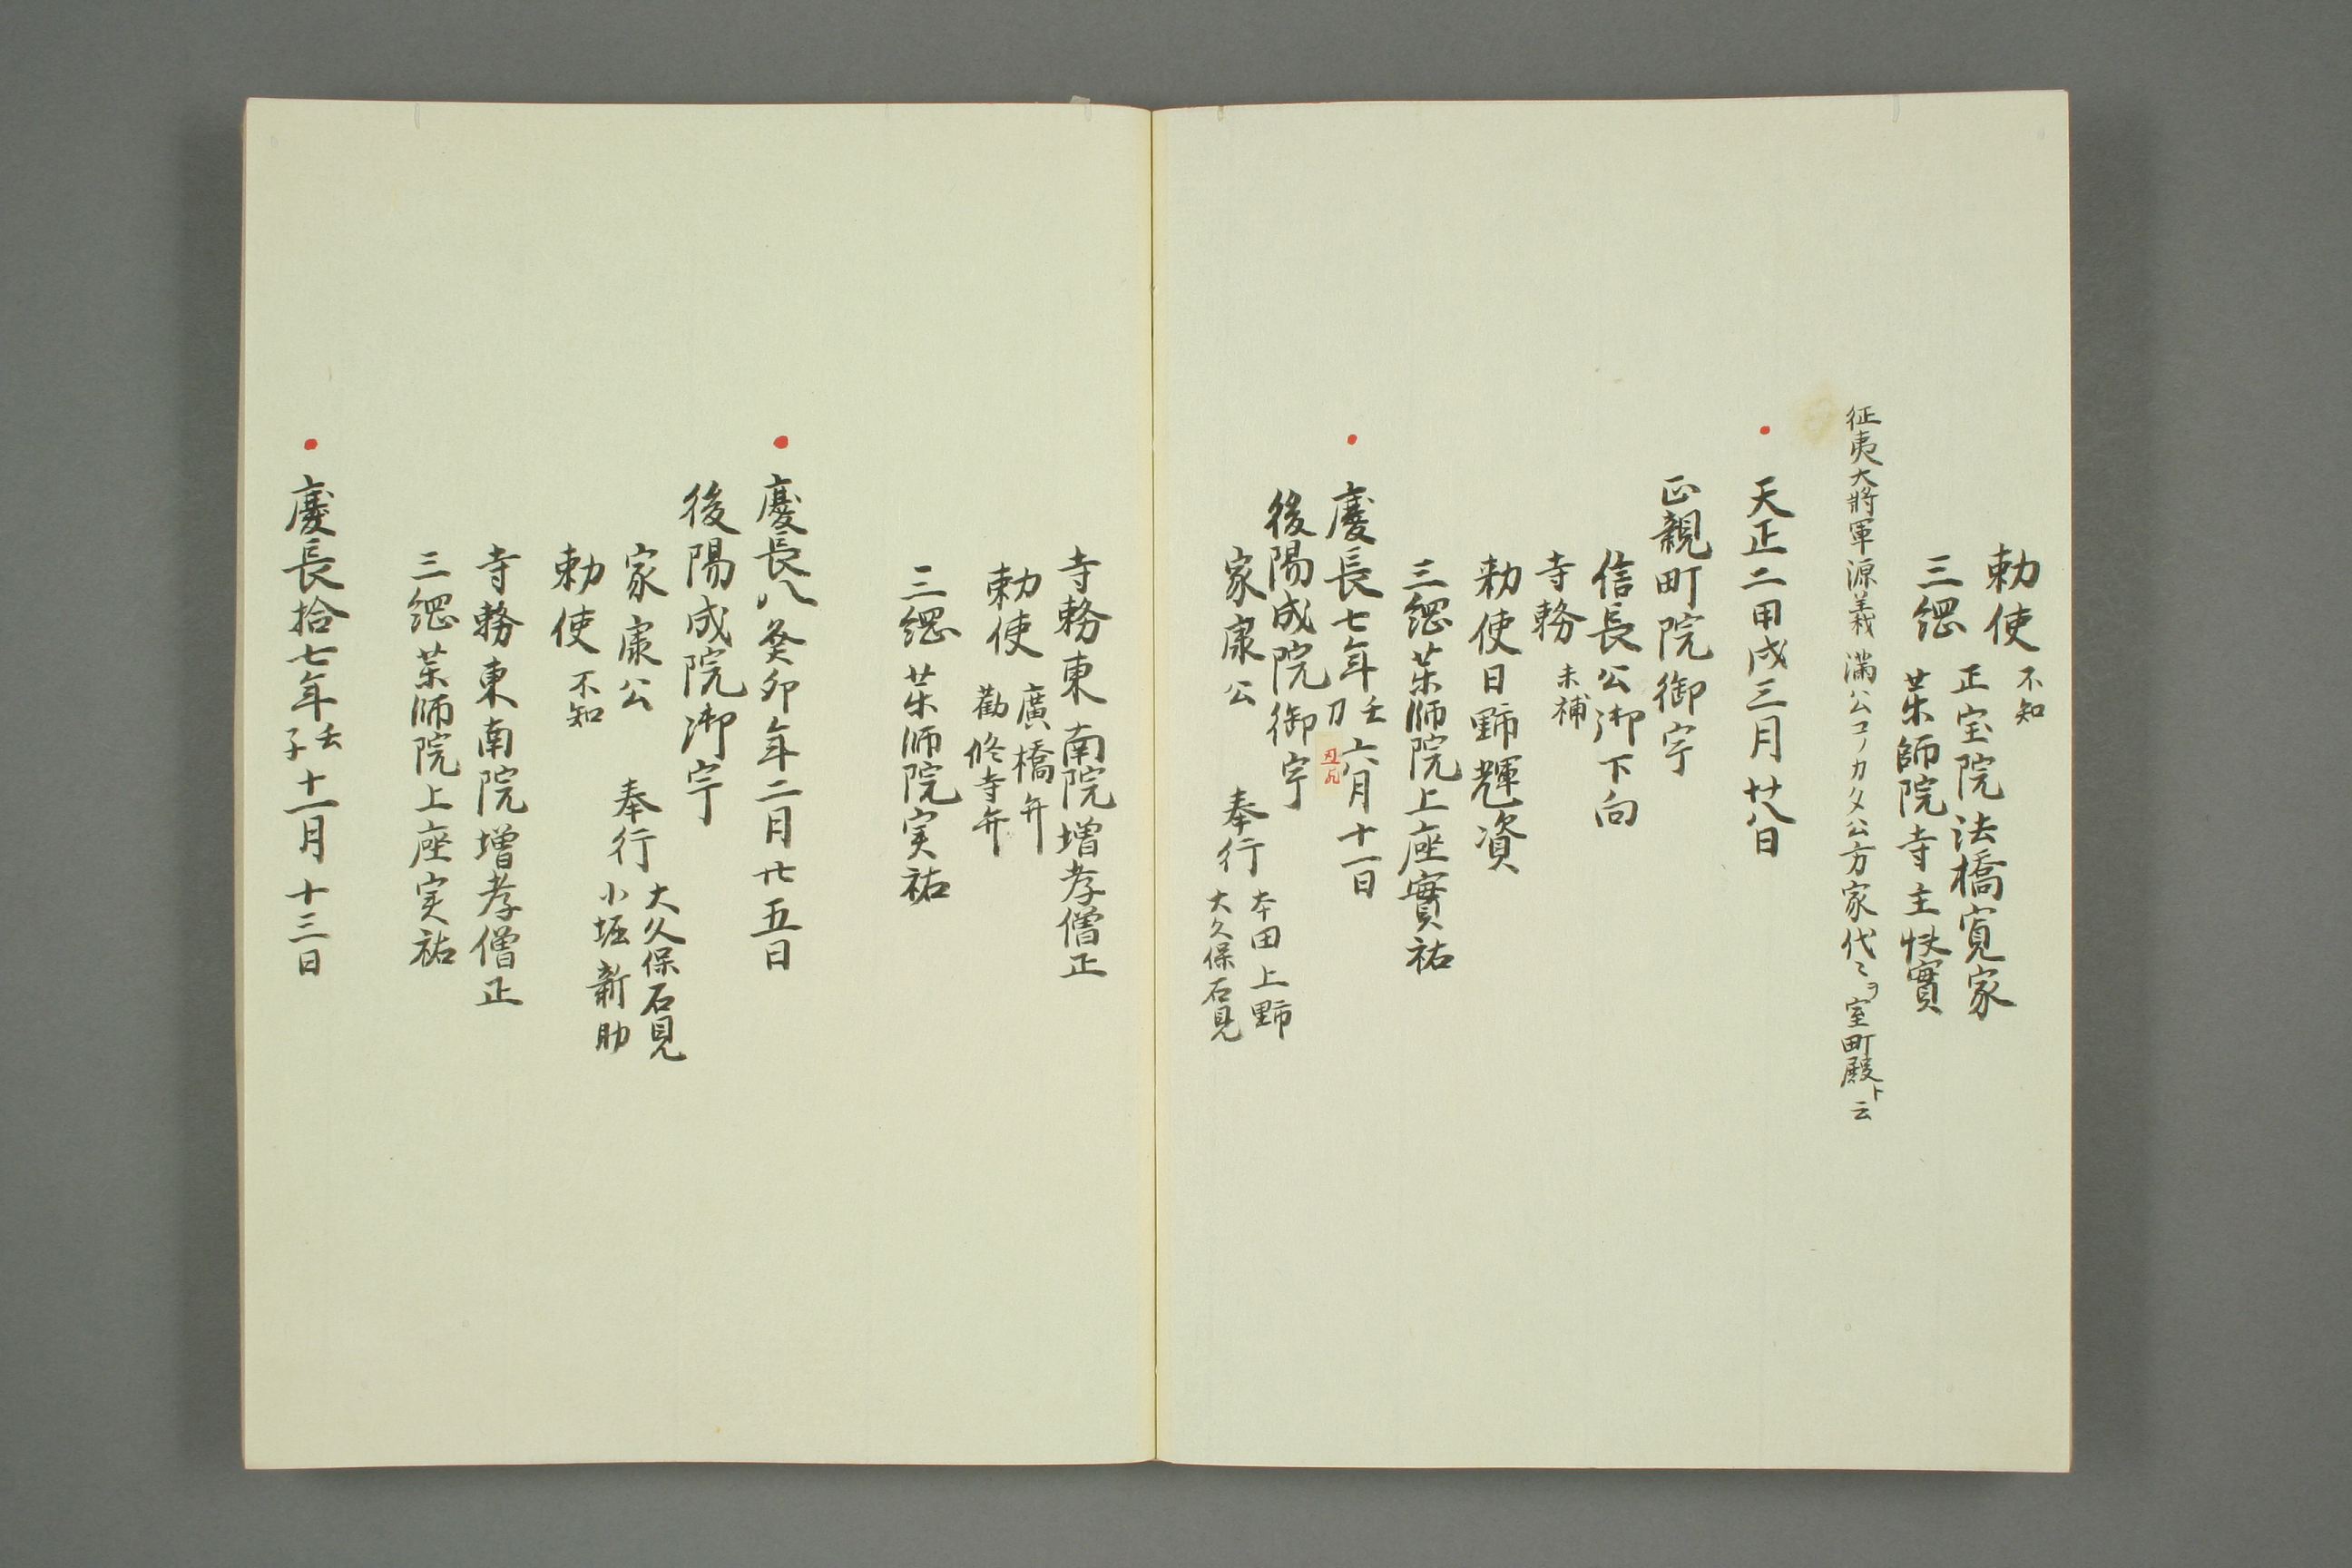 勅使 不知
正宝院法橋寛家
三綱 薬師院寺主快實
征夷大將軍源義満公コノカタ公方家代〻ヲ室町殿ト云
天正二甲戌三月廿八日
正親町院御宇
信長公御下向
寺務 未補
勅使日野輝資
三綱薬師院上座實祐
慶長七年壬刀六月十一日
後陽成院御宇
家康公 奉行 本田上野
大久保石見
寺務東南院増孝僧正
勅使 廣橋弁
勧修寺弁
三綱 薬師院実祐
慶長八癸卯年二月廿五日
後陽成院御宇
家康公 奉行 大久保石見
小堀新助
勅使 不知
寺務東南院増孝僧正
三綱 薬師院上座実祐
慶長拾七年壬子十一月十三日